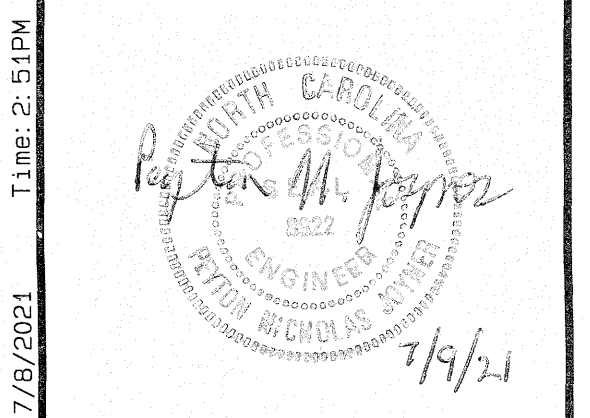 Time: 2: 51PM
7/8/2021
NORTH CAROLINA
PROFESSIONAL
SEAL
8922
ENGINEER
PEYTON NICHOLAS JOYNER
Peyton N. Joyner
7/9/21